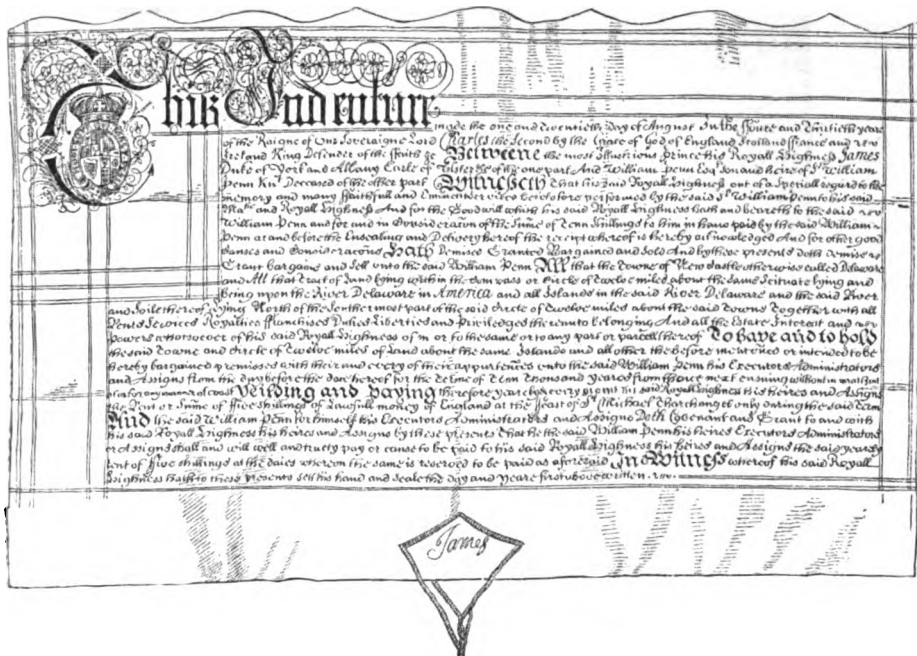 This Indenture
made the one and twentieth Day of August In the ffoure and Thirtieth yeare
of the Raigne of Our Soveraigne Lord Charles the Second by the Grace of God of England Scotland ffrance and
Ireland King Defender of the ffaith &c Betweene the most Illustrious Prince His Royall Highness James
Duke of York and Albany Earle of Ulster &c of the one part And William Penn Esqr Son and heire of Sr William
Penn Knt Deceased of the other part Witnesseth That his said Royall Highness out of a Speciall regard to the
memory and many ffaithfull and Emminent Services heretofore performed by the said Sr William Penn to his said
Matie and Royall Highness And for the Goodwill which his said Royall Highness hath and beareth to the said
William Penn and for and in Consideracon of the Sume of Tenn Shillings to him in hand paid by the said William
Penn at and before the Ensealing and Delivery hereof the receipt whereof is hereby acknowledged And for other good
Causes and Consideracons Hath Demised Granted Bargained and Sold And by these presents doth Demise
Grant bargane and Sell unto the said William Penn All that the Towne of Newcastle otherwise called Delaware
and All that Tract of Land lying within the Compass or Circle of Twelve miles about the same Scituate lying and
being upon the River Delaware in America and all Islands in the said River Delaware and the said River
and Soile thereof lying North of the Southermost part of the said Circle of Twelve miles about the said Towne Together with all
Rents Services Royalties ffranchises Duties Liberties and Priviledges thereunto belonging And all the Estate Interest and
Powers whatsoever of his said Royall Highness of in or to the same or to any part or parcell thereof To have and to hold
the said Towne and Circle of Twelve miles of Land about the same Islands and all other the before menconed or intended to be
hereby bargained premisses with their and every of their appurtences unto the said William Penn his Executors Administrators
and Assigns from the day before the date hereof for the Terme of Tenn Thousand yeares from thence next ensuing without
of any manner of wast Yeilding and paying therefore yearly and every yeare his said Royall Highness His heires and Assigns
the Rent or Sume of ffive Shillings of Lawfull money of England at the ffeast of St Michael Tharchangel only during the said Term
And the said William Penn for himself his Executors Administrators and Assigns Doth Covenant and Grant to and with
his said Royall Highness his heires and Assigns by these presents That he the said William Penn his heires Executors Administrators
or Assigns shall and will well and truely pay or cause to be paid to his said Royall Highness his heires and Assigns the said yearely
rent of ffive shillings at the daies whereon the same is reserved to be paid as aforesaid In Witness whereof his said Royall
Highness hath to these presents sett his hand and seale the day and yeare first above written
James